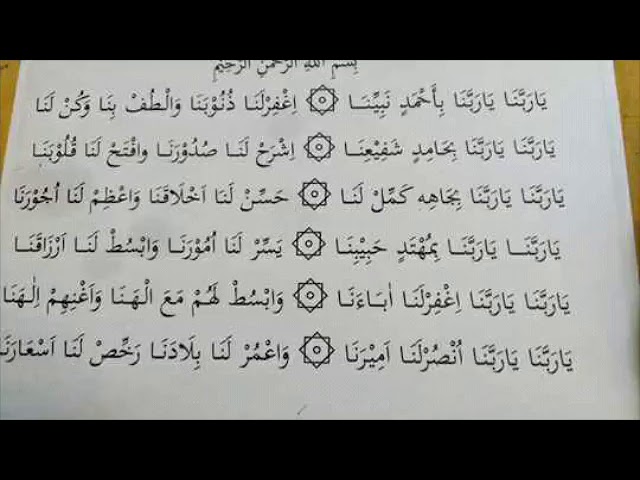 بِسْمِ اللهِ الرَّحْمٰنِ الرَّحِيْمِ
يَارَبَّنَا يَارَبَّنَا بِأَحْمَدٍ نَبِيِّنَا ۞ اِغْفِرْلَنَا ذُنُوْبَنَا وَالْطُفْ بِنَا وَكُنْ لَنَا
يَارَبَّنَا يَارَبَّنَا بِحَامِدٍ شَفِيْعِنَا ۞ اِشْرَحْ لَنَا صُدُوْرَنَا وافْتَحْ لَنَا قُلُوْبَنَا
يَارَبَّنَا يَارَبَّنَا بِجَاهِهِ كَمِّلْ لَنَا ۞ حَسِّنْ لَنَا اَخْلَاقَنَا وَاعْظِمْ لَنَا اُجُوْرَنَا
يَارَبَّنَا يَارَبَّنَا بِمُهْتَدٍ حَبِيْبِنَا ۞ يَسِّرْ لَنَا اُمُوْرَنَا وَابْسُطْ لَنَا اَرْزَاقَنَا
يَارَبَّنَا يَارَبَّنَا اِغْفِرْلَنَا اٰبَاءَنَا ۞ وَابْسُطْ لَهُمْ مَعَ الْهَنَا وَاَغْنِهِمْ اِلٰهَنَا
يَارَبَّنَا يَارَبَّنَا اُنْصُرْلَنَا اَمِيْرَنَا ۞ وَاعْمُرْ لَنَا بِلَادَنَا رَخِّصْ لَنَا اَسْعَارَنَا